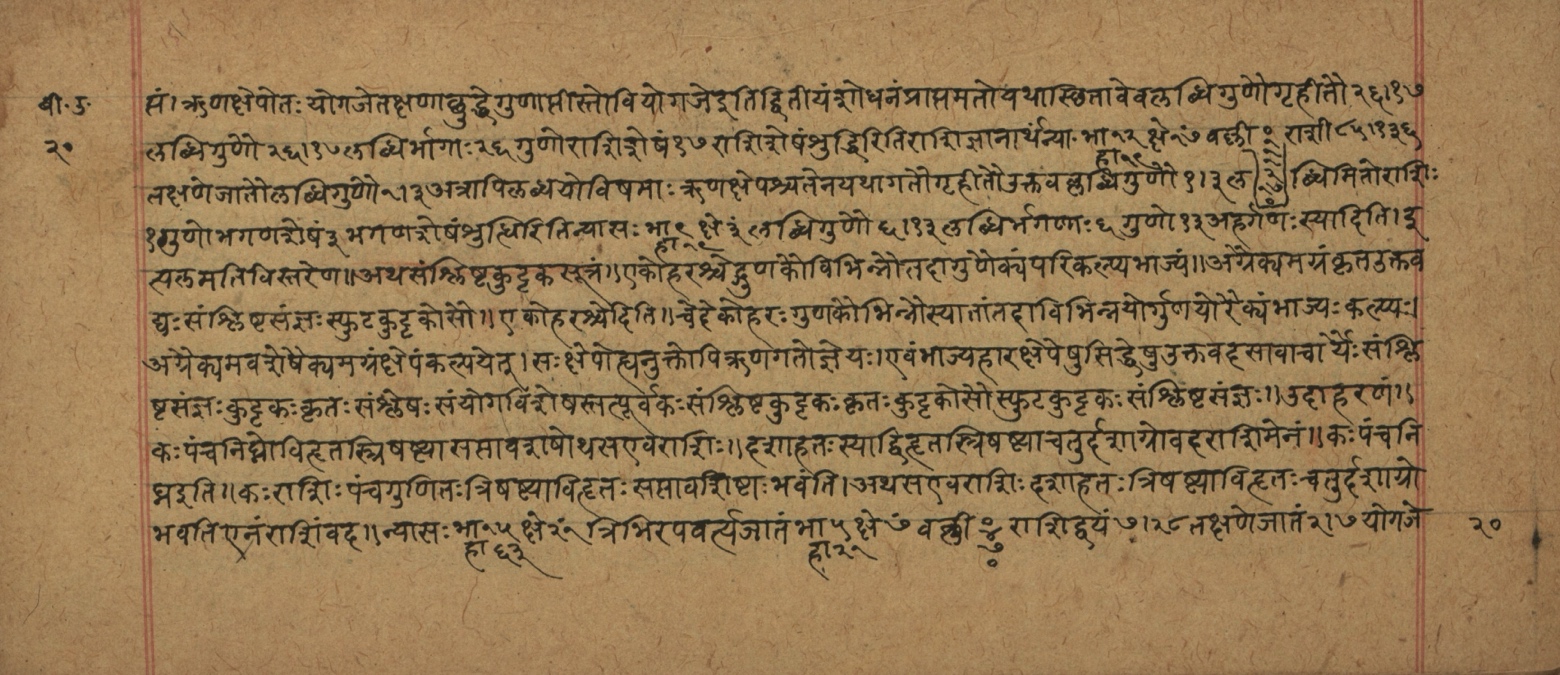 बी. उ.
२०
सं। ऋणक्षेपोतः योगजेतक्षणाछुद्धेगुणाप्तीस्तोवियोगजेइतिद्वितीयंशोधनंप्राप्तमतोयथास्छितावेवलब्धिगुणौगृहीतौ २६।१७
लब्धिगुणौ २६।१७ लब्धिर्भागाः २६ गुणोराशिशेषं १७ राशिशेषंशुद्धिरितिराशिज्ञानार्थंन्या. भा १२ क्षे १७ वल्ली राशी ८५।१३६
हा १९
तक्षणेजातौलब्धिगुणौ ५।३ अत्रापिलब्धयोविषमाः ऋणक्षेपश्चतेनयथागतौगृहीतौउक्तवल्लब्धिगुणौ १।३ ल ब्धिमितोराशिः
१ गुणोभगणशेषं ३ भगणशेषंशुत्धिरितिन्यासः भा ९ क्षे ३ लब्धिगुणौ ६।१३ लब्धिर्भगणाः ६ गुणो १३ अहर्गणःस्यादिति। इ
हा १९
त्यलमतिविस्तरेण॥ अथसंश्लिष्टकुट्टकसूत्रं॥ एकोहरश्चेद्गुणकौविभिन्नौतदागुणैक्यंपरिकल्प्यभाज्यं॥ अग्रैक्यमग्रंकृतउक्तव
द्यःसंश्लिष्टसंज्ञःस्फुटकुट्टकोसौ॥ एकोहरश्चेदिति॥ चेदेकोहरःगुणकौभिन्नौस्यातांतदाविभिन्नयोर्गुणयोरैक्यंभाज्यःकल्प्यः।
अग्रैक्यमवशेषैक्यमग्रंक्षेपंकल्पयेत्। सःक्षेपोह्यनुक्तोपिऋणगतोज्ञेयः। एवंभाज्यहारक्षेपेषुसिद्धेषुउक्तवदसावाचार्यैःसंश्लि
ष्टसंज्ञःकुट्टकःकृतःसंश्लेषःसंयोगविशेषस्तत्पूर्वकःसंश्लिष्टकुट्टकःकृतःकुट्टकोसौस्फुटकुट्टकःसंश्लिष्टसंज्ञः॥ उदाहरणं॥
कःपंचनिघ्नोविहृतस्त्रिषष्ट्यासप्तावशेषोथसएवराशिः॥ दशाहतःस्याद्विहृतस्त्रिषष्ट्याचतुर्दशाग्रोवदराशिमेनं॥ कःपंचनि
घ्नइति॥ कःराशिःपंचगुणितःत्रिषष्ट्याविहृतःसप्तावशिष्टाःभवंति। अथसएवराशिःदशाहतःत्रिषष्ट्याविहृतःचतुर्दशाग्रो
भवतिएनंराशिंवद॥ न्यासः भा १५ क्षे २१ त्रिभिरपवर्त्यजातं भा ५ क्षे ७ वल्ली राशिद्वयं ७।२८ तक्षणेजातं २।७ योगजे
हा ६३ हा २१
२०